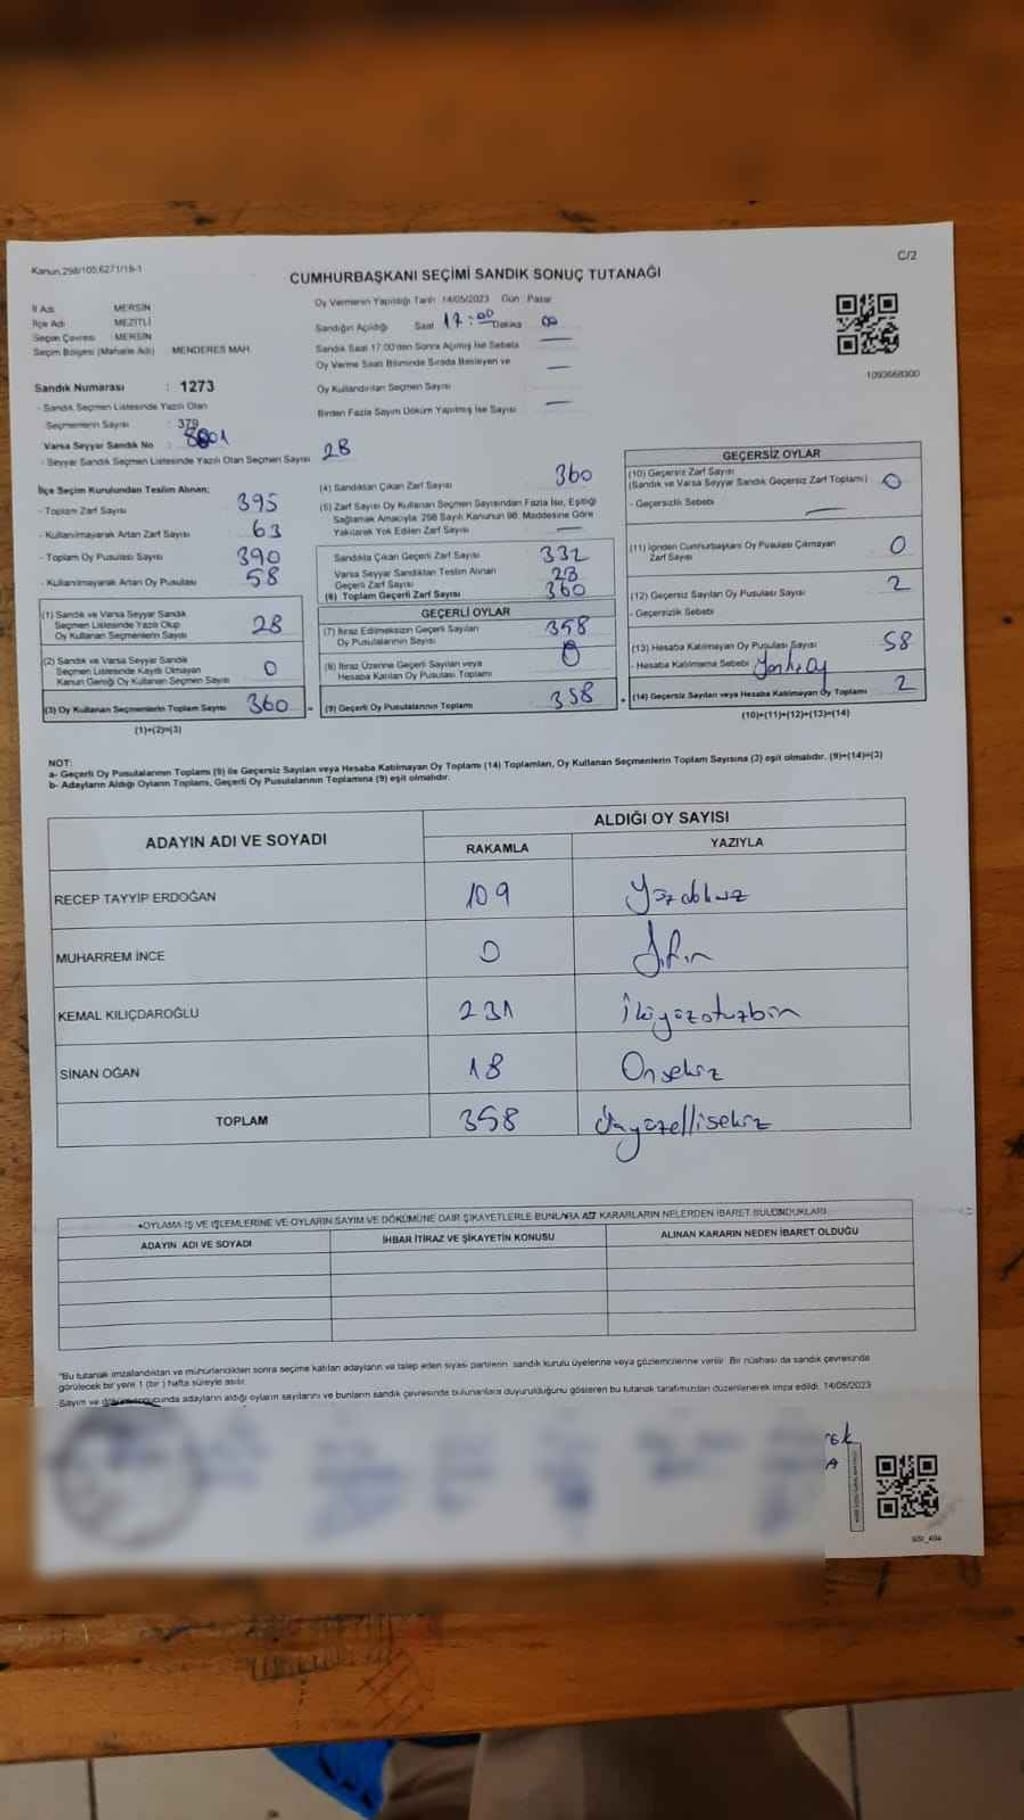 Kanun.298/105;6271/19-1
C/2
CUMHURBAŞKANI SEÇİMİ SANDIK SONUÇ TUTANAĞI
İl Adı MERSİN
İlçe Adı MEZİTLİ
Seçim Çevresi MERSİN
Seçim Bölgesi (Mahalle Adı) MENDERES MAH.
Oy Vermenin Yapıldığı Tarih 14/05/2023 Gün Pazar
Sandığın Açıldığı Saat 17:00 Dakika 00
Sandık Saat 17:00'den Sonra Açılmış İse Sebebi —
Oy Verme Saati Bitiminde Sırada Bekleyen ve
Oy Kullandırılan Seçmen Sayısı —
Birden Fazla Sayım Döküm Yapılmış İse Sayısı —
1093668300
Sandık Numarası : 1273
- Sandık Seçmen Listesinde Yazılı Olan
Seçmenlerin Sayısı : 379
Varsa Seyyar Sandık No :
- Seyyar Sandık Seçmen Listesinde Yazılı Olan Seçmen Sayısı 28
İlçe Seçim Kurulundan Teslim Alınan;
- Toplam Zarf Sayısı 395
- Kullanılmayarak Artan Zarf Sayısı 63
- Toplam Oy Pusulası Sayısı 390
- Kullanılmayarak Artan Oy Pusulası 58
(1) Sandık ve Varsa Seyyar Sandık
Seçmen Listesinde Yazılı Olup
Oy Kullanan Seçmenlerin Sayısı 28
(2) Sandık ve Varsa Seyyar Sandık
Seçmen Listesinde Kayıtlı Olmayan
Kanun Gereği Oy Kullanan Seçmen Sayısı 0
(3) Oy Kullanan Seçmenlerin Toplam Sayısı 360
(1)+(2)=(3)
(4) Sandıktan Çıkan Zarf Sayısı 360
(5) Zarf Sayısı Oy Kullanan Seçmen Sayısından Fazla İse, Eşitliği
Sağlamak Amacıyla; 298 Sayılı Kanunun 98. Maddesine Göre
Yakılarak Yok Edilen Zarf Sayısı —
Sandıkta Çıkan Geçerli Zarf Sayısı 332
Varsa Seyyar Sandıktan Teslim Alınan
Geçerli Zarf Sayısı 28
(6) Toplam Geçerli Zarf Sayısı 360
GEÇERLİ OYLAR
(7) İtiraz Edilmeksizin Geçerli Sayılan
Oy Pusulalarının Sayısı 358
(8) İtiraz Üzerine Geçerli Sayılan veya
Hesaba Katılan Oy Pusulası Toplamı 0
(9) Geçerli Oy Pusulalarının Toplamı 358
GEÇERSİZ OYLAR
(10) Geçersiz Zarf Sayısı
(Sandık ve Varsa Seyyar Sandık Geçersiz Zarf Toplamı) 0
- Geçersizlik Sebebi —
(11) İçinden Cumhurbaşkanı Oy Pusulası Çıkmayan
Zarf Sayısı 0
(12) Geçersiz Sayılan Oy Pusulası Sayısı 2
- Geçersizlik Sebebi
(13) Hesaba Katılmayan Oy Pusulası Sayısı 58
- Hesaba Katılmama Sebebi
(14) Geçersiz Sayılan veya Hesaba Katılmayan Oy Toplamı 2
(10)+(11)+(12)+(13)=(14)
NOT:
a- Geçerli Oy Pusulalarının Toplamı (9) ile Geçersiz Sayılan veya Hesaba Katılmayan Oy Toplamı (14) Toplamları, Oy Kullanan Seçmenlerin Toplam Sayısına (3) eşit olmalıdır. (9)+(14)=(3)
b- Adayların Aldığı Oyların Toplamı, Geçerli Oy Pusulalarının Toplamına (9) eşit olmalıdır.
ADAYIN ADI VE SOYADI
ALDIĞI OY SAYISI
RAKAMLA YAZIYLA
RECEP TAYYİP ERDOĞAN 109 Yüzdokuz
MUHARREM İNCE 0 Sıfır
KEMAL KILIÇDAROĞLU 231 İkiyüzotuzbir
SİNAN OĞAN 18 Onsekiz
TOPLAM 358 Üçyüzellisekiz
OYLAMA İŞ VE İŞLEMLERİNE VE OYLARIN SAYIM VE DÖKÜMÜNE DAİR ŞİKAYETLERLE BUNLARA AİT KARARLARIN NELERDEN İBARET BULUNDUKLARI
ADAYIN ADI VE SOYADI İHBAR İTİRAZ VE ŞİKAYETİN KONUSU ALINAN KARARIN NEDEN İBARET OLDUĞU
"Bu tutanak imzalandıktan ve mühürlendikten sonra seçime katılan adayların ve talep eden siyasi partilerin sandık kurulu üyelerine veya gözlemcilerine verilir. Bir nüshası da sandık çevresinde
görülecek bir yere 1 (bir) hafta süreyle asılır.
Sayım ve dökümü sonucunda adayların aldığı oyların sayılarını ve bunların sandık çevresinde bulunanlara duyurulduğunu gösteren bu tutanak tarafımızdan düzenlenerek imza edildi. 14/05/2023